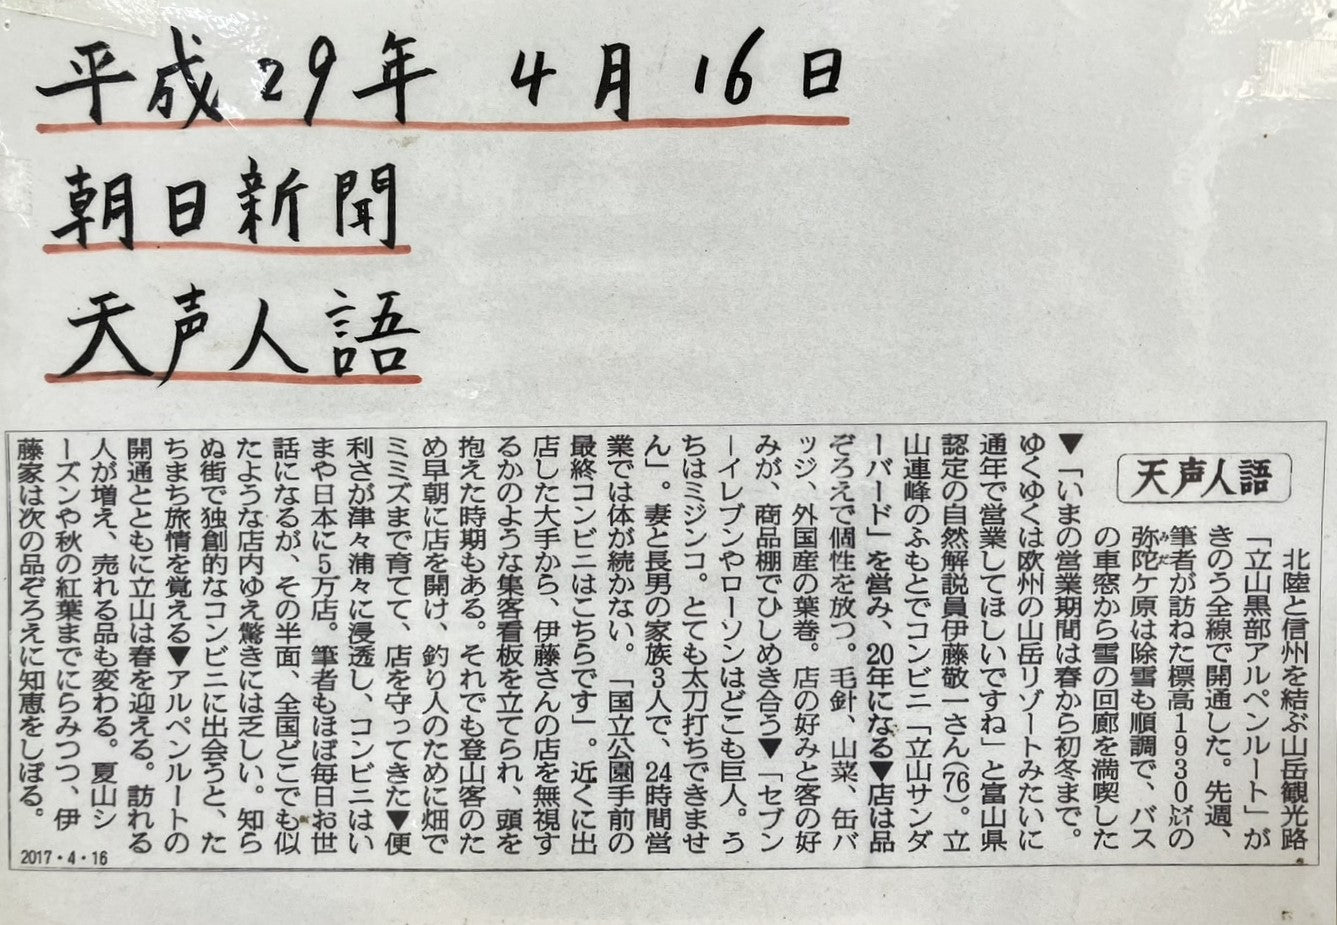 平成29年 4月16日
朝日新聞
天声人語
天声人語
北陸と信州を結ぶ山岳観光路
「立山黒部アルペンルート」が
きのう全線で開通した。先週、
筆者が訪ねた標高1930㍍の
弥陀ケ原は除雪も順調で、バス
みだ
の車窓から雪の回廊を満喫した
▼「いまの営業期間は春から初冬まで。
ゆくゆくは欧州の山岳リゾートみたいに
通年で営業してほしいですね」と富山県
認定の自然解説員伊藤敬一さん(76)。立
山連峰のふもとでコンビニ「立山サンダ
ーバード」を営み、20年になる▼店は品
ぞろえで個性を放つ。毛針、山菜、缶バ
ッジ、外国産の葉巻。店の好みと客の好
みが、商品棚でひしめき合う▼「セブン
ーイレブンやローソンはどこも巨人。う
ちはミジンコ。とても太刀打ちできませ
ん」。妻と長男の家族3人で、24時間営
業では体が続かない。「国立公園手前の
最終コンビニはこちらです」。近くに出
店した大手から、伊藤さんの店を無視す
るかのような集客看板を立てられ、頭を
抱えた時期もある。それでも登山客のた
め早朝に店を開け、釣り人のために畑で
ミミズまで育てて、店を守ってきた▼便
利さが津々浦々に浸透し、コンビニはい
まや日本に5万店。筆者もほぼ毎日お世
話になるが、その半面、全国どこでも似
たような店内ゆえ驚きには乏しい。知ら
ぬ街で独創的なコンビニに出会うと、た
ちまち旅情を覚える▼アルペンルートの
開通とともに立山は春を迎える。訪れる
人が増え、売れる品も変わる。夏山シ
ーズンや秋の紅葉までにらみつつ、伊
藤家は次の品ぞろえに知恵をしぼる。
2017・4・16